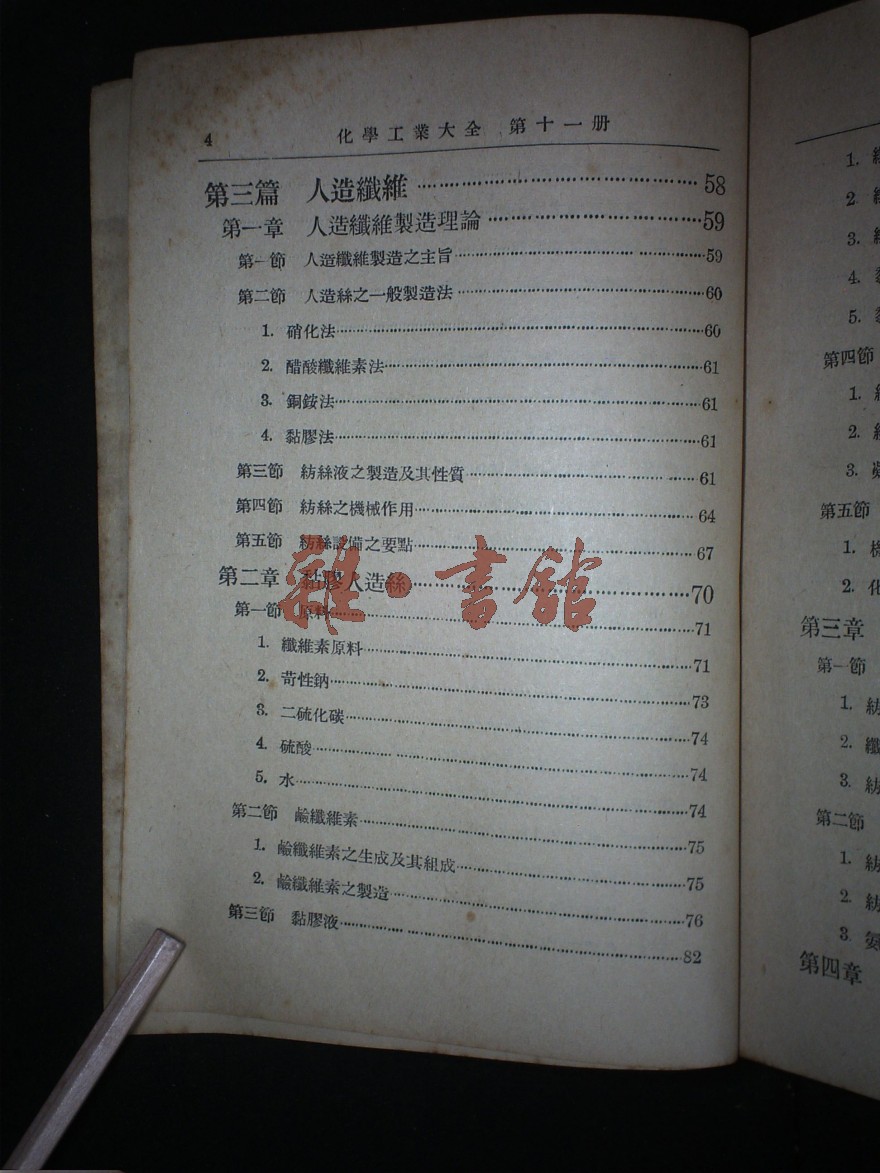 4 化學工業大全 第十一册
第三篇 人造纖維……58
第一章 人造纖維製造理論……59
第一節 人造纖維製造之主旨……59
第二節 人造絲之一般製造法……60
1. 硝化法……60
2. 醋酸纖維素法……61
3. 銅銨法……61
4. 黏膠法……61
第三節 紡絲液之製造及其性質……61
第四節 紡絲之機械作用……64
第五節 紡絲設備之要點……67
第二章 黏膠人造絲……70
第一節 原料……71
1. 纖維素原料……71
2. 苛性鈉……73
3. 二硫化碳……74
4. 硫酸……74
5. 水……74
第二節 鹼纖維素……75
1. 鹼纖維素之生成及其組成……75
2. 鹼纖維素之製造……76
第三節 黏膠液……82
雜·書館
1.
2
3.
4.
5.
第四節
1.
2.
3.
第五節
1.
2.
第三章
第一節
1. 紡
2. 纖
3. 紡
第二節
1. 紡
2. 紡
3
第四章